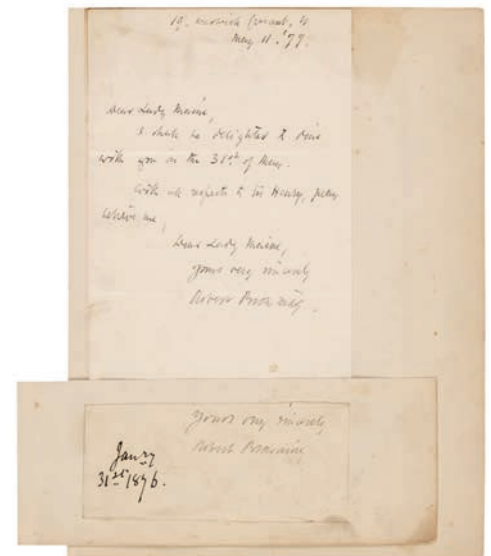 19. Warwick Crescent, W
May 11. '77.
Dear Lady Maine,
I shall be delighted to dine
with you on the 31st of May.
With all respects to Sir Henry, pray
believe me,
Dear Lady Maine,
yours very sincerely
Robert Browning.
yours very sincerely
Robert Browning
Janry
31st 1876.